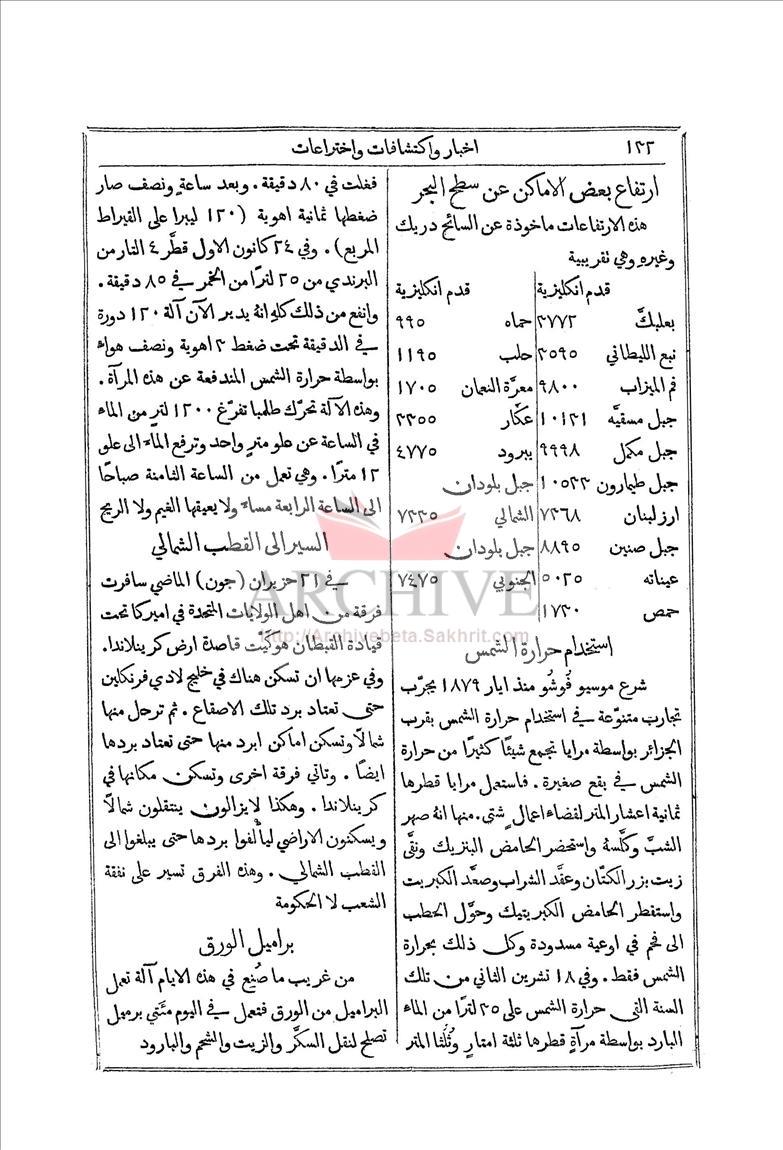 ١٢٢
اخبار واكتشافات واختراعات
ارتفاع بعض الاماكن عن سطح البحر
هذه الارتفاعات ماخوذة عن السائح دريك
وغيره وهي تقريبية
قدم انكليزية قدم انكليزية
بعلبكّ ٣٧٧٢ حماه ٩٩٥
نبع الليطاني ٣٥٩٥ حلب ١١٩٥
فم الميزاب ٩٨٠٠ معرّة النعمان ١٧٠٥
جبل مسقيّه ١٠١٣١ عكّار ٢٣٥٥
جبل مكمل ٩٩٩٨ يبرود ٤٧٧٥
جبل طيمارون ١٠٥٣٣ جبل بلودان
ارز لبنان ٧٣٦٨ الشمالي ٧٢٣٥
جبل صنين ٨٨٩٥ جبل بلودان
عيناته ٥٠٣٥ الجنوبي ٧٤٧٥
حمص ١٧٣٠
استخدام حرارة الشمس
شرع موسيو فُوشُو منذ ايار ١٨٧٩ يجرّب
تجارب متنوّعة في استخدام حرارة الشمس بقرب
الجزائر بواسطة مرايا تجمع شيئًا كثيرًا من حرارة
الشمس في بقع صغيرة . فاستعمل مرايا قطرها
ثمانية اعشار المتر لقضاء اعمال شتى . منها انهُ صهر
الشبّ وكلّسهُ واستحضر الحامض البنزيك ونقّى
زيت بزر الكتّان وعقَّد الشراب وصعَّد الكبريت
واستقطر الحامض الكبريتيك وحوَّل الحطب
الى فحم في اوعية مسدودة وكل ذلك بحرارة
الشمس فقط . وفي ١٨ تشرين الثاني من تلك
السنة القى حرارة الشمس على ٣٥ لترًا من الماء
البارد بواسطة مرآةٍ قطرها ثلثة امتار وثُلُثا المتر
فغلت في ٨٠ دقيقة . وبعد ساعةٍ ونصف صار
ضغطها ثمانية اهوية (١٢٠ ليبرا على القيراط
المربع) . وفي ٢٤ كانون الاول قطَّر ٤ التار من
البرندي من ٢٥ لترًا من الخمر في ٨٥ دقيقة .
وانفع من ذلك كلهِ انهُ يدير الآن آلة ١٢٠ دورة
في الدقيقة تحت ضغط ٣ اهوية ونصف هواء
بواسطة حرارة الشمس المندفعة عن هذه المرآة .
وهذه الآلة تحرّك طلمبا تفرّغ ١٢٠٠ لتر من الماء
في الساعة عن علو مترٍ واحد وترفع الماء الى علو
١٢ مترًا . وهي تعمل من الساعة الثامنة صباحًا
الى الساعة الرابعة مساءً ولا يعيقها الغيم ولا الريح
السير الى القطب الشمالي
في ٢١ حزيران (جون) الماضي سافرت
فرقة من اهل الولايات المتحدة في اميركا تحت
قيادة القبطان هوكَيت قاصدة ارض كرينلاندا.
وفي عزمها ان تسكن هناك في خليج لادي فرنكلين
حتى تعتاد برد تلك الاصقاع . ثم ترحل منها
شمالًا وتسكن اماكن ابرد منها حتى تعتاد بردها
ايضًا . وتاتي فرقة اخرى وتسكن مكانها في
كرينلاندا . وهكذا لا يزالون ينتقلون شمالًا
ويسكنون الاراضي ليألفوا بردها حتى يبلغوا الى
القطب الشمالي . وهذه الفرق تسير على نفقة
الشعب لا الحكومة
براميل الورق
من غريب ما صُنِع في هذه الايام آلة تعمل
البراميل من الورق فتعمل في اليوم مئتي برميل
تصلح لنقل السكَّر والزيت والشحم والبارود
ARCHIVE
http://Archivebeta.Sakhrit.com